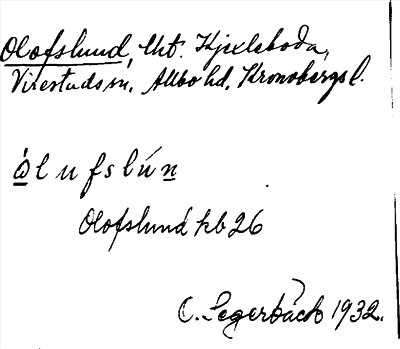 Olofslund, tht. Kjexleboda,
Virestads sn, Allbo hd, Kronobergs l.
ὼlufslún
Olofslund kb 26
C. Segerbäck 1932.